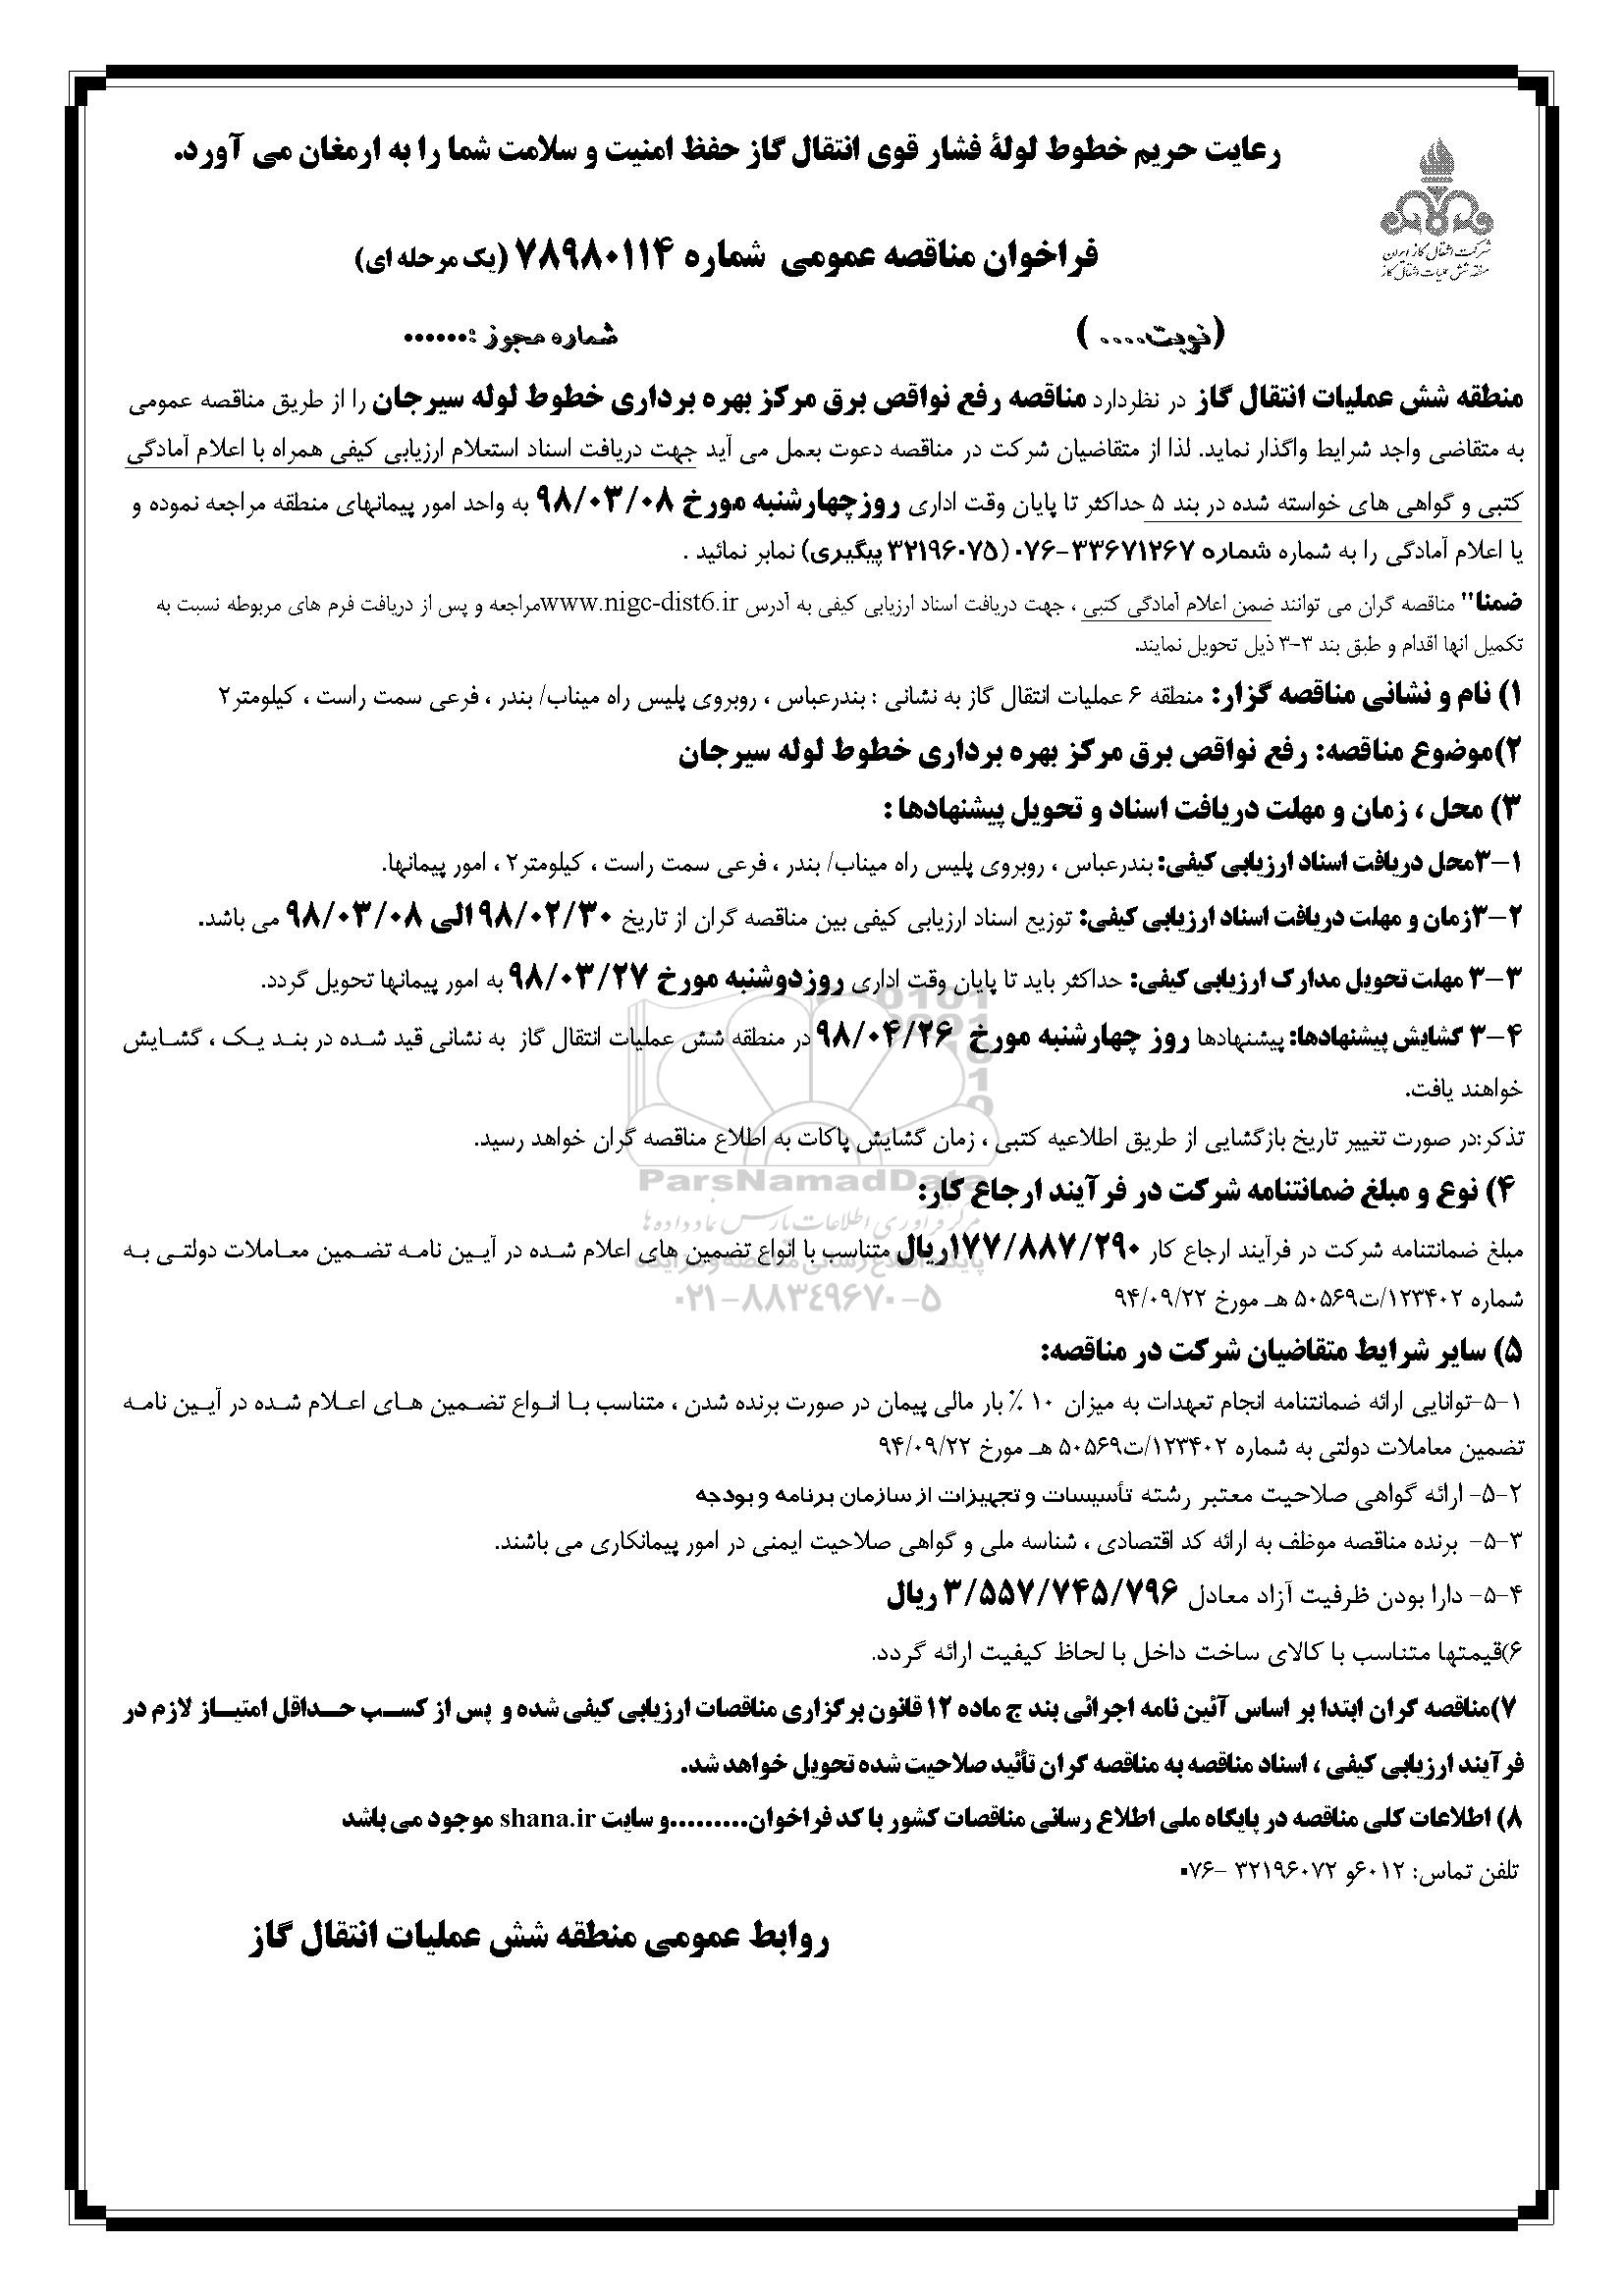 رعایت حریم خطوط لولهٔ فشار قوی انتقال گاز حفظ امنیت و سلامت شما را به ارمغان می آورد.
شرکت انتقال گاز ایران
منطقه شش عملیات انتقال گاز
فراخوان مناقصه عمومی شماره ۷۸۹۸۰۱۱۴ (یک مرحله ای)
(نوبت.... ) شماره مجوز :......
منطقه شش عملیات انتقال گاز در نظردارد مناقصه رفع نواقص برق مرکز بهره برداری خطوط لوله سیرجان را از طریق مناقصه عمومی
به متقاضی واجد شرایط واگذار نماید. لذا از متقاضیان شرکت در مناقصه دعوت بعمل می آید جهت دریافت اسناد استعلام ارزیابی کیفی همراه با اعلام آمادگی
کتبی و گواهی های خواسته شده در بند ۵ حداکثر تا پایان وقت اداری روزچهارشنبه مورخ ۹۸/۰۳/۰۸ به واحد امور پیمانهای منطقه مراجعه نموده و
یا اعلام آمادگی را به شماره شماره ۳۳۶۷۱۲۶۷-۰۷۶ (۳۲۱۹۶۰۷۵ پیگیری) نمابر نمائید .
ضمنا" مناقصه گران می توانند ضمن اعلام آمادگی کتبی ، جهت دریافت اسناد ارزیابی کیفی به آدرس www.nigc-dist6.irمراجعه و پس از دریافت فرم های مربوطه نسبت به
تکمیل انها اقدام و طبق بند ۳-۳ ذیل تحویل نمایند.
۱) نام و نشانی مناقصه گزار: منطقه ۶ عملیات انتقال گاز به نشانی : بندرعباس ، روبروی پلیس راه میناب/ بندر ، فرعی سمت راست ، کیلومتر۲
۲)موضوع مناقصه: رفع نواقص برق مرکز بهره برداری خطوط لوله سیرجان
۳) محل ، زمان و مهلت دریافت اسناد و تحویل پیشنهادها :
۳-۱محل دریافت اسناد ارزیابی کیفی: بندرعباس ، روبروی پلیس راه میناب/ بندر ، فرعی سمت راست ، کیلومتر۲ ، امور پیمانها.
۳-۲زمان و مهلت دریافت اسناد ارزیابی کیفی: توزیع اسناد ارزیابی کیفی بین مناقصه گران از تاریخ ۹۸/۰۲/۳۰الی ۹۸/۰۳/۰۸ می باشد.
۳-۳ مهلت تحویل مدارک ارزیابی کیفی: حداکثر باید تا پایان وقت اداری روزدوشنبه مورخ ۹۸/۰۳/۲۷ به امور پیمانها تحویل گردد.
۳-۴ گشایش پیشنهادها: پیشنهادها روز چهارشنبه مورخ ۹۸/۰۴/۲۶ در منطقه شش عملیات انتقال گاز به نشانی قید شده در بند یک ، گشایش
خواهند یافت.
تذکر:در صورت تغییر تاریخ بازگشایی از طریق اطلاعیه کتبی ، زمان گشایش پاکات به اطلاع مناقصه گران خواهد رسید.
ParsNamadData
۴) نوع و مبلغ ضمانتنامه شرکت در فرآیند ارجاع کار:
مرکز فرآوری اطلاعات پارس نماد داده ها
مبلغ ضمانتنامه شرکت در فرآیند ارجاع کار ۱۷۷/۸۸۷/۲۹۰ریال متناسب با انواع تضمین های اعلام شده در آیین نامه تضمین معاملات دولتی به
شماره ۱۲۳۴۰۲/ت۵۰۵۶۹ هـ مورخ ۹۴/۰۹/۲۲
۰۲۱-۸۸۳۴۹۶۷۰-۵
۵) سایر شرایط متقاضیان شرکت در مناقصه:
۵-۱-توانایی ارائه ضمانتنامه انجام تعهدات به میزان ۱۰ ٪ بار مالی پیمان در صورت برنده شدن ، متناسب با انواع تضمین های اعلام شده در آیین نامه
تضمین معاملات دولتی به شماره ۱۲۳۴۰۲/ت۵۰۵۶۹ هـ مورخ ۹۴/۰۹/۲۲
۵-۲- ارائه گواهی صلاحیت معتبر رشته تأسیسات و تجهیزات از سازمان برنامه و بودجه
۵-۳- برنده مناقصه موظف به ارائه کد اقتصادی ، شناسه ملی و گواهی صلاحیت ایمنی در امور پیمانکاری می باشند.
۵-۴- دارا بودن ظرفیت آزاد معادل ۳/۵۵۷/۷۴۵/۷۹۶ ریال
۶)قیمتها متناسب با کالای ساخت داخل با لحاظ کیفیت ارائه گردد.
۷)مناقصه گران ابتدا بر اساس آئین نامه اجرائی بند ج ماده ۱۲ قانون برگزاری مناقصات ارزیابی کیفی شده و پس از کسب حداقل امتیاز لازم در
فرآیند ارزیابی کیفی ، اسناد مناقصه به مناقصه گران تأئید صلاحیت شده تحویل خواهد شد.
۸) اطلاعات کلی مناقصه در پایگاه ملی اطلاع رسانی مناقصات کشور با کد فراخوان.........و سایت shana.ir موجود می باشد
تلفن تماس: ۶۰۱۲و ۳۲۱۹۶۰۷۲ -۰۷۶
روابط عمومی منطقه شش عملیات انتقال گاز